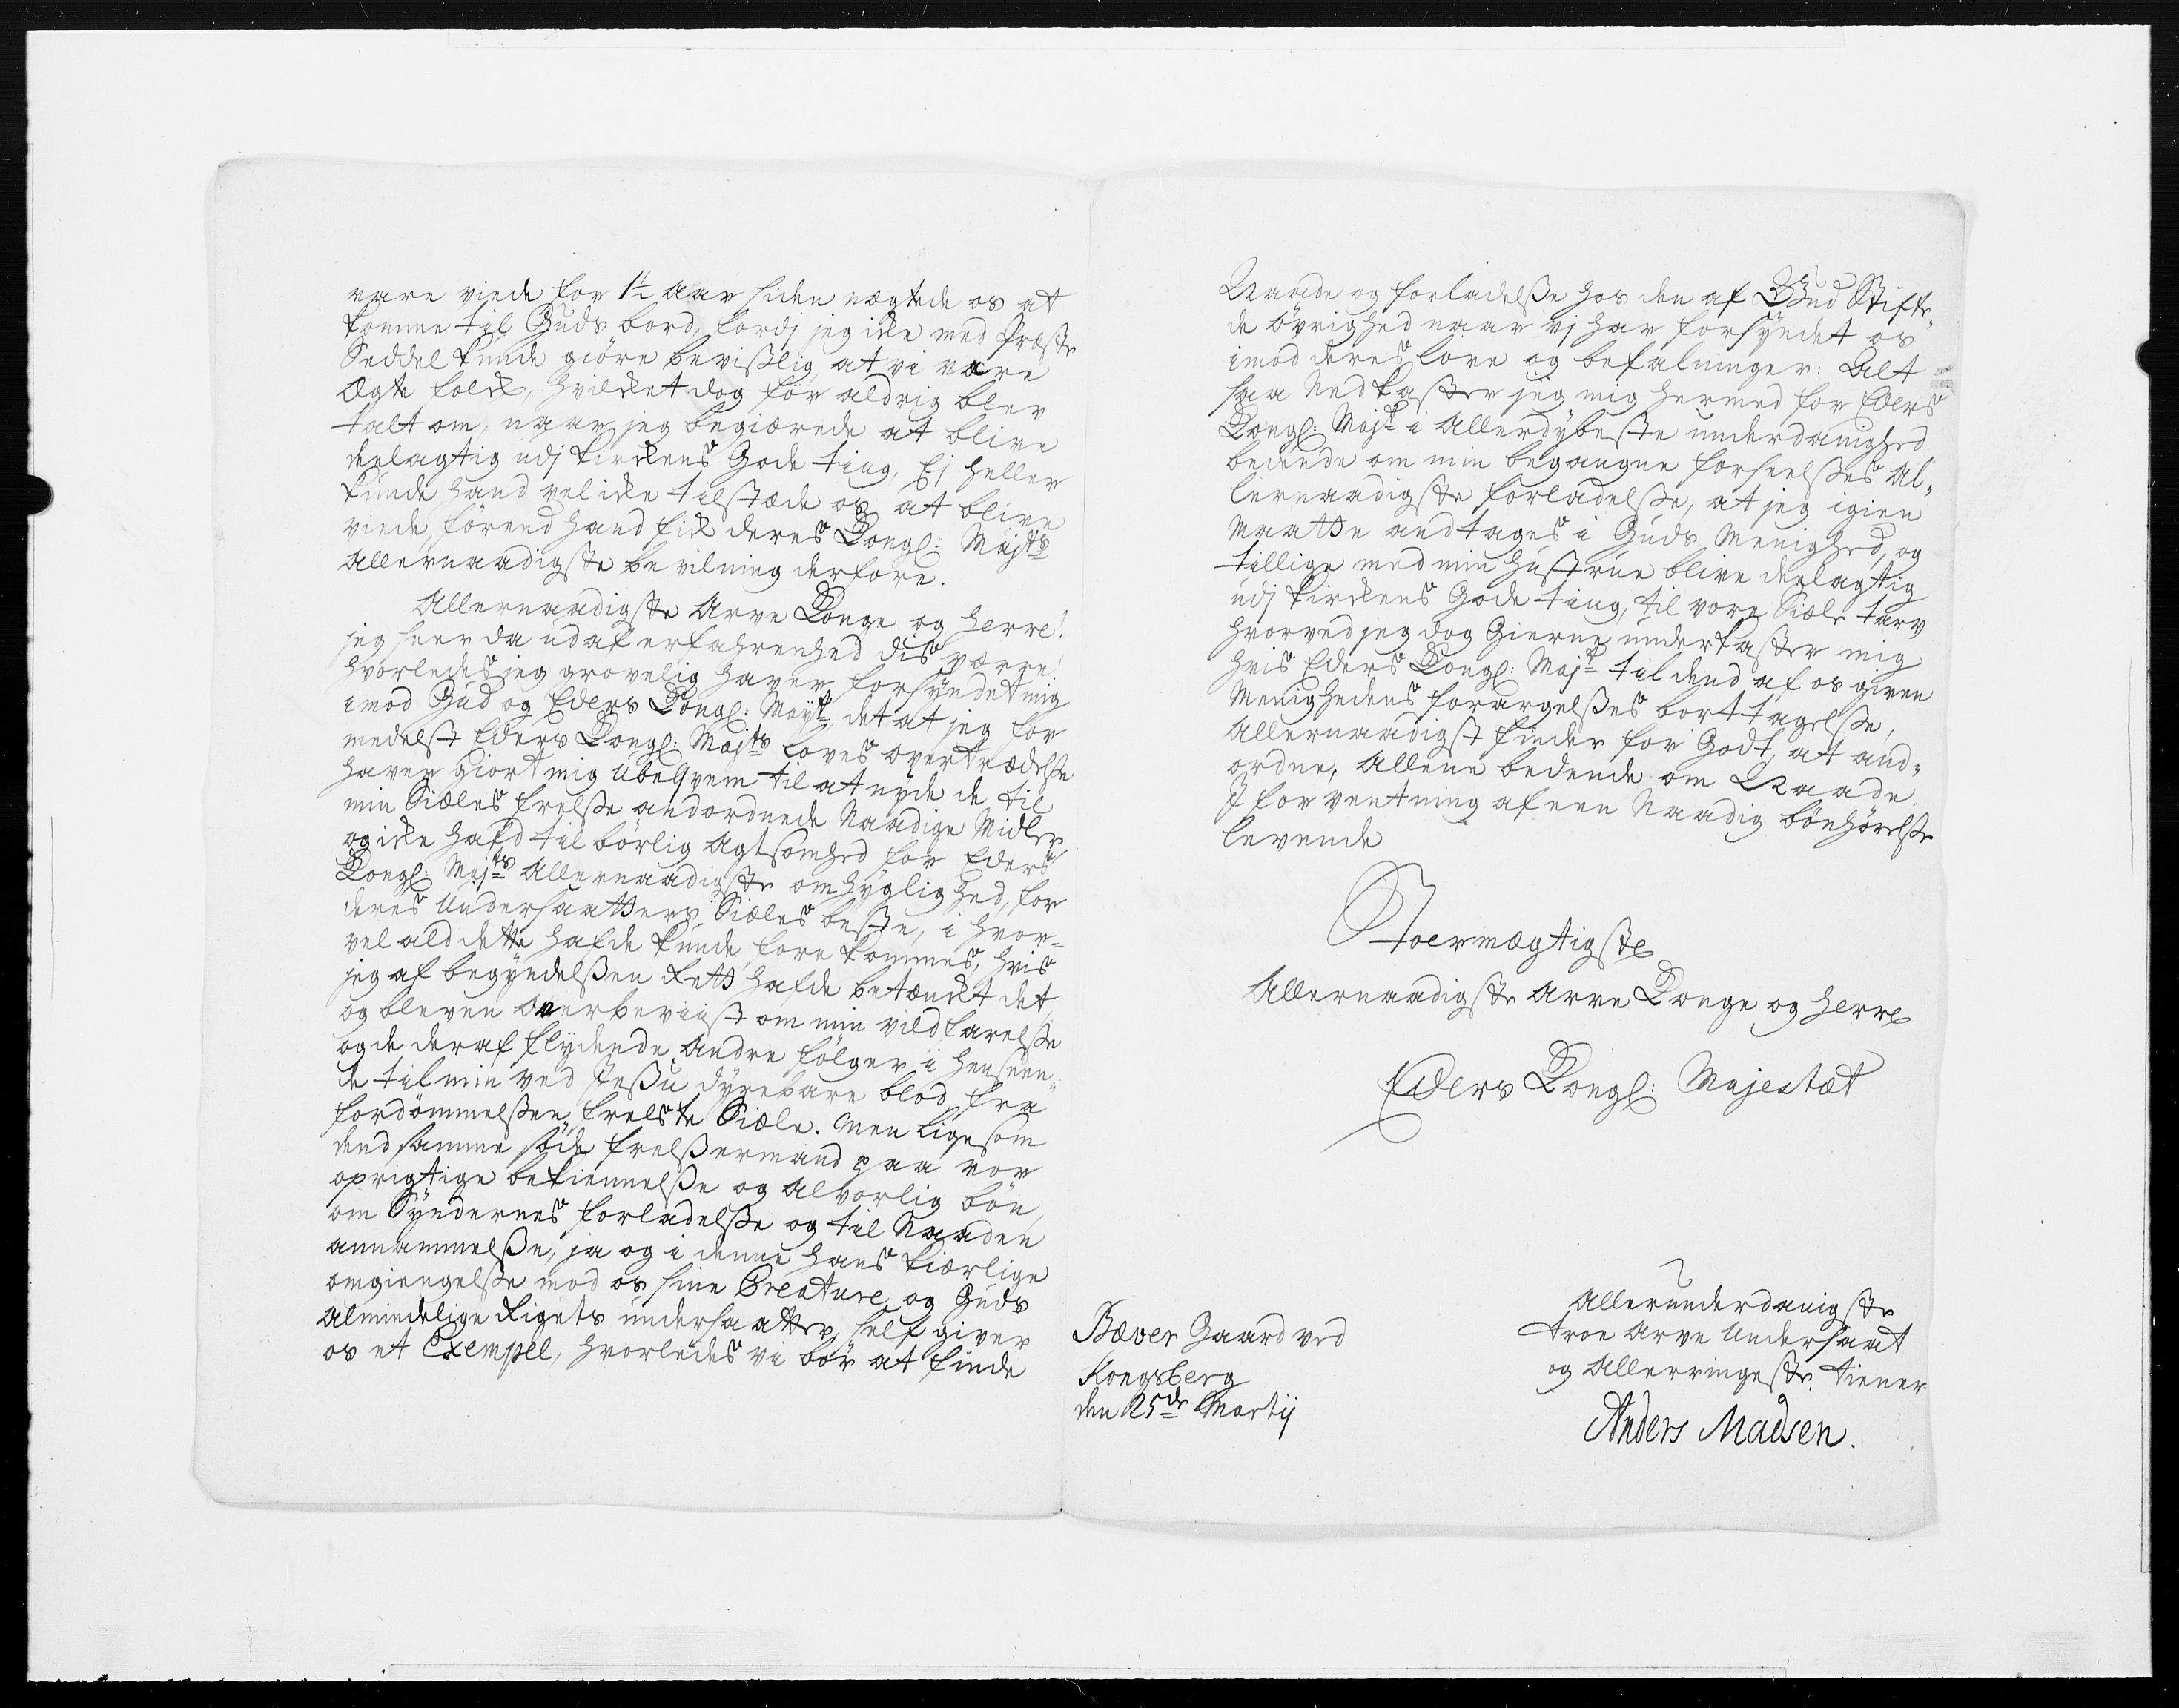 vare viede for 1½ aar siden nægtede os at
komme til Guds bord, fordj jeg icke med Præste
Seddel kunde giöre bevisslig at vi vare
Ægte folck, hvilcket dog för aldrig blev
talt om, naar jeg begiærede at blive
deelagtig udj Kirckens Gode ting, Ej heller
kunde hand vel icke tilstæde os at blive
viede, förend hand fick deres Kongl: Majts
Allernaadigste bevilning derfore.
Allernaadigste Arve Konge og Herre!
jeg seer da ud af erfahrenhed dis værre!
hvorledes jeg grovelig haver forsyndet mig
imod Gud og Eders Kongl: Mayt, det at jeg for
medelst Eders Kongl: Majts Loves overtrædelse
haver giort mig ubeqvem til at nyde de til
min Siæles frelse andordnede Naadige Midler,
og icke hafd tilbörlig Agtsomhed for Eders
Kongl: Majts Allernaadigste omhyglighed, for
deres Undersaatters Siæles beste, i hvor-
vel ald dette hafde kunde forekommes, hvis
jeg af begyndelsen Rett hafde betænckt det,
og bleven overbeviist om min vildfarelse
og de deraf flydende Andre fölger i henseen-
de til min ved Jesu dyrebare blod fra
fordömmelsen frelste Siæle. Men ligesom
dend samme söde frelsermand paa vor
oprigtige bekiennelse og Alvorlig bön,
om Syndernes forladelse og til Naaden
annammelse, ja og i denne hans kiærlige
omgiengelse mod os sine Creature og Guds
Almindelige Rigets undersaatter, self giver
os et Exempel, hvorledes vi bör at finde
Naade og forladelse hos den af Gud Stifte-
de övrighed naar vj har forsyndet os
imod deres love og befalninger: Alt
saa Nedkaster jeg mig hermed for Eders
Kongl: Majt i Allerdybeste underdanighed
bedende om min begangne forseelses Al-
lernaadigste forladelse, at jeg igien
Maatte andtages i Guds Menighed, og
tillige med min hustrue blive deelagtig
udj Kirckens Gode ting, til vore Siæle tarv
hvorved jeg dog Gierne underkaster mig
hvis Eders Kongl: Majt til dend af os given
Menighedens forargelses borttagelse,
Allernaadigst finder for Godt, at and-
ordne, Allene bedende om Naade.
J forventning af een Naadig bönhörelse
levende
Stoermægtigste
Allernaadigste Arve Konge og Herre
Eders Kongl: Majestæt
Bæver Gaard ved
Kongsberg
den 25de Martij
Allerunderdanigste
troe Arve Undersaat
og Allerringeste tiener
Anders Madsen.